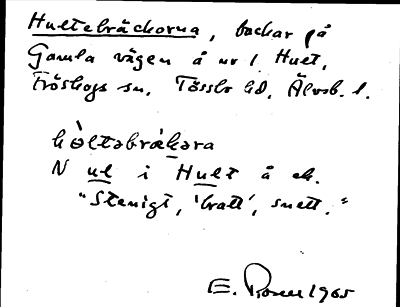 Hultebräckorna, backar på
Gamla vägen å nr 1 Hult,
Fröskogs sn. Tössbo hd. Älvsb. l.
hòltəbrækəra
N ul i Hult å ek.
"Stenigt, 'bratt', snett."
E. Rosell 1965